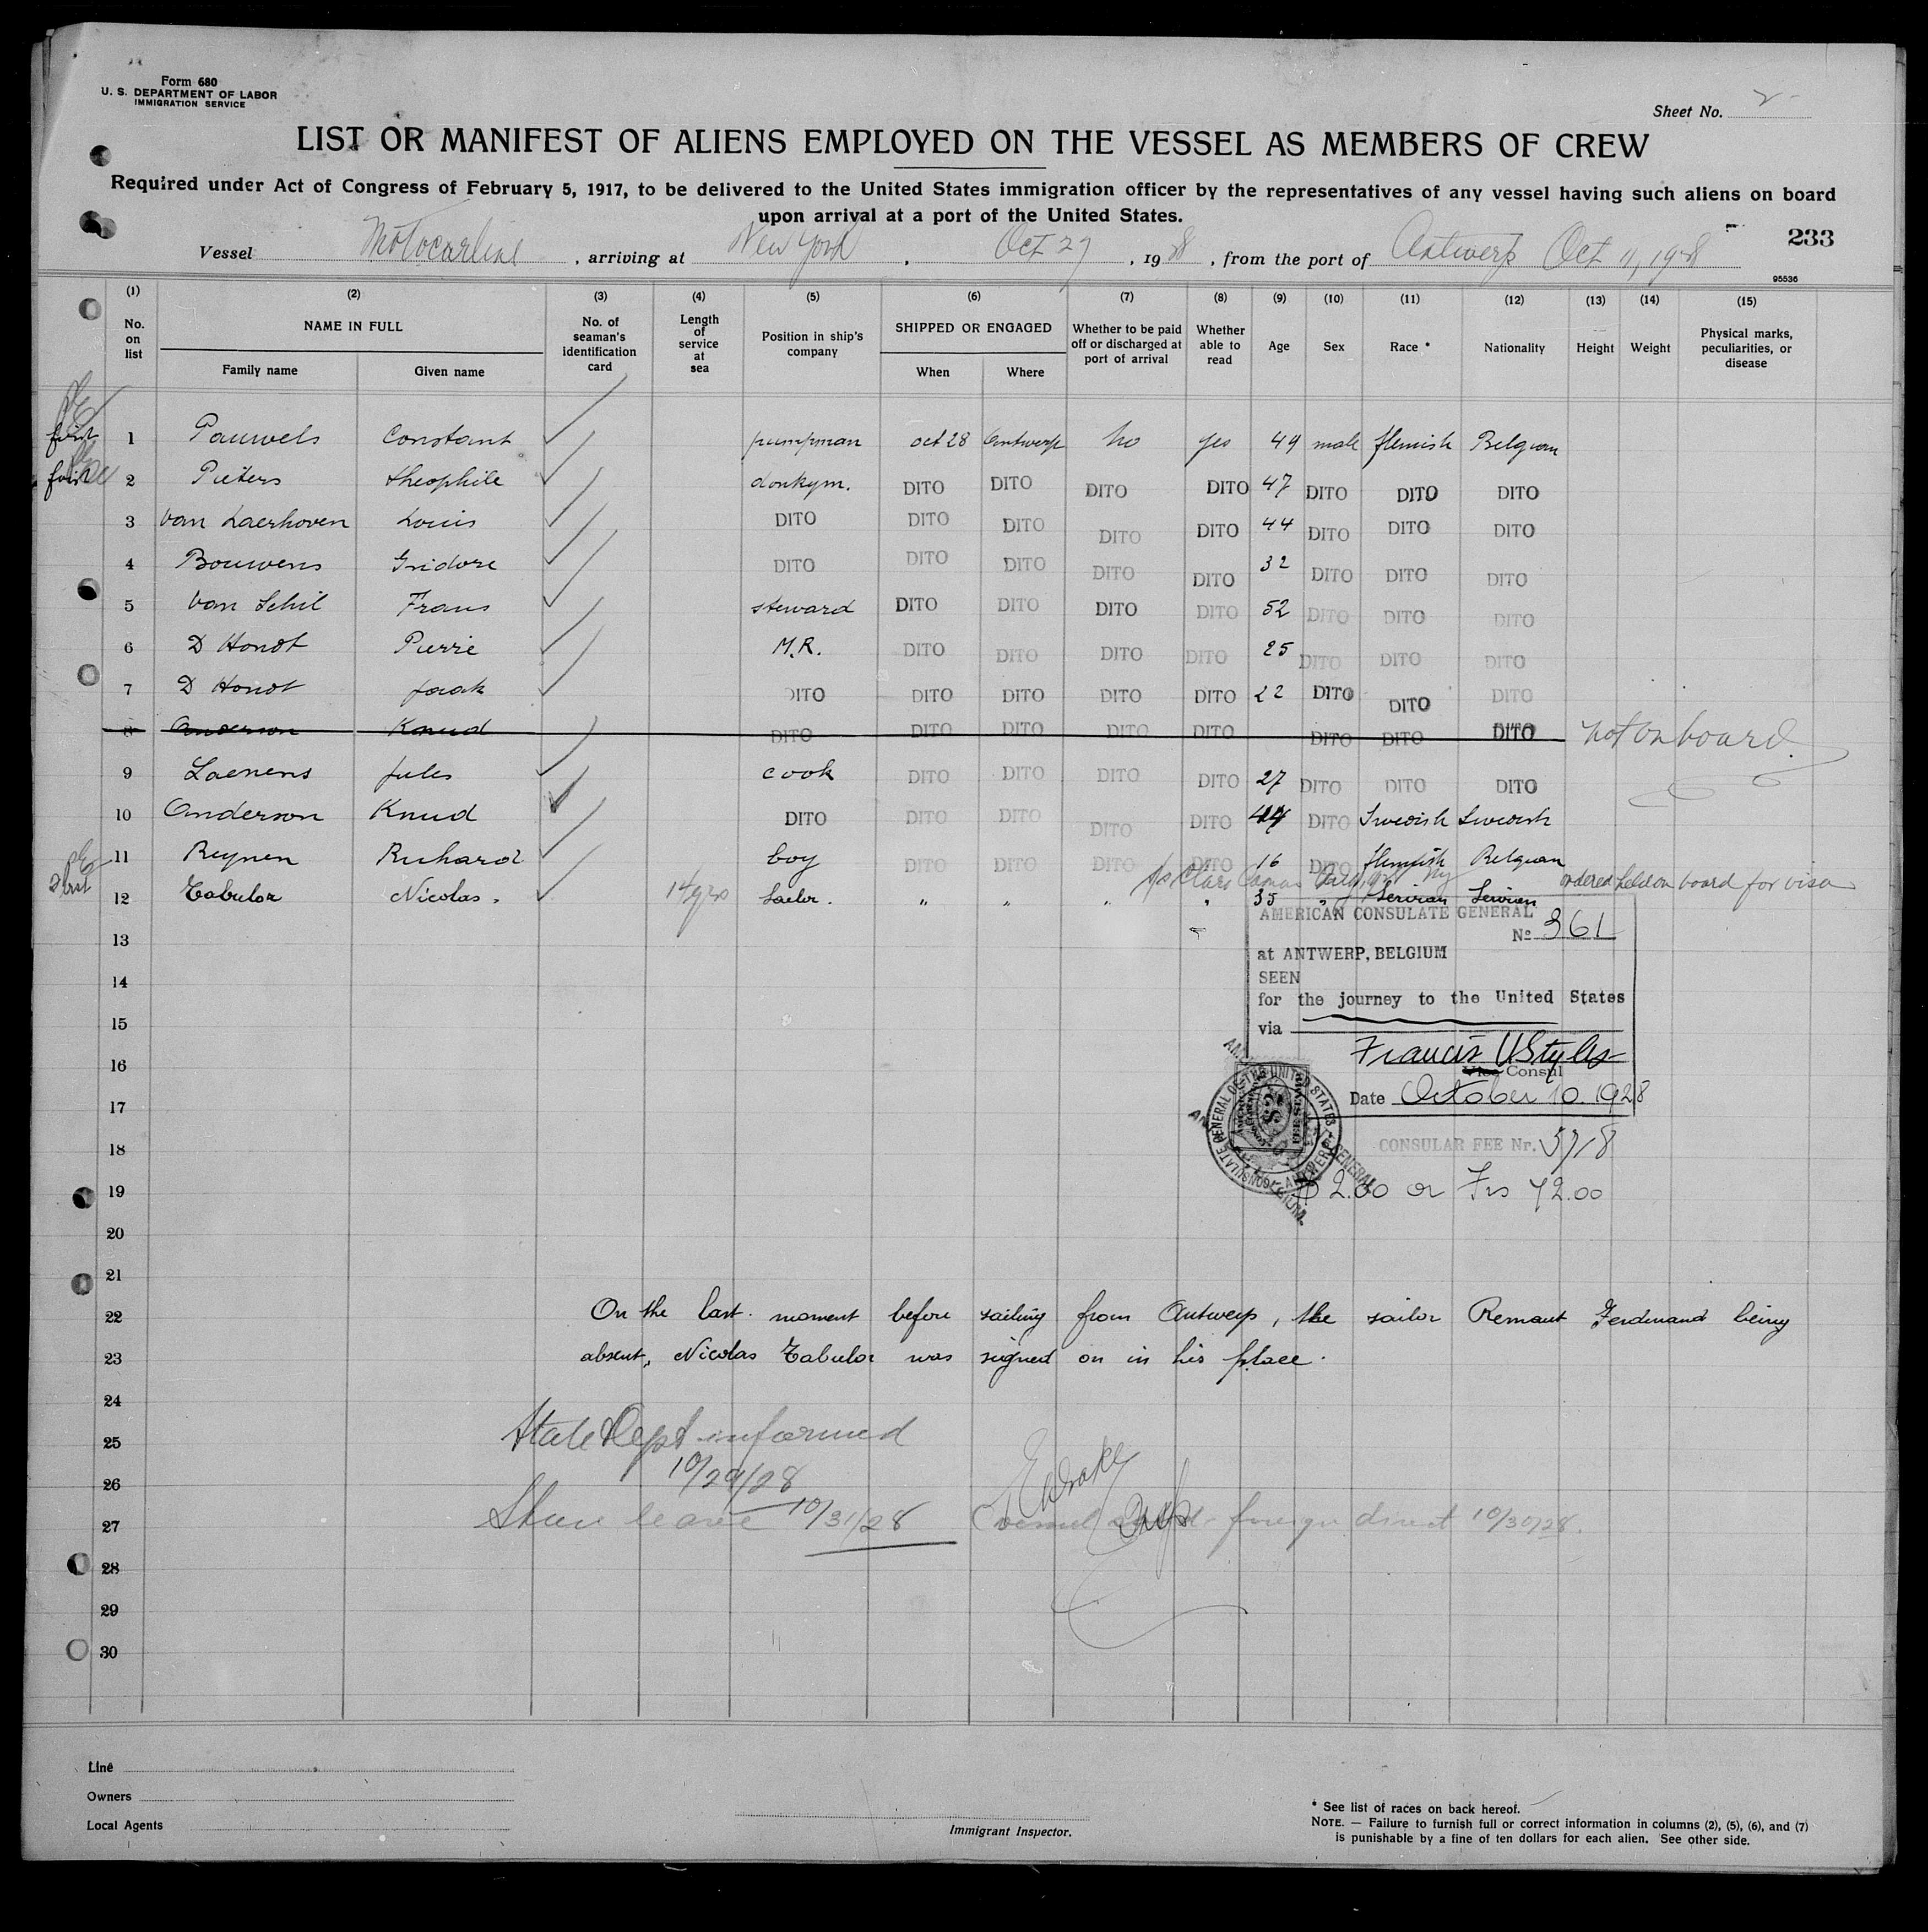 Form 680
U. S. DEPARTMENT OF LABOR
IMMIGRATION SERVICE
Sheet No. 2
LIST OR MANIFEST OF ALIENS EMPLOYED ON THE VESSEL AS MEMBERS OF CREW
Required under Act of Congress of February 5, 1917, to be delivered to the United States immigration officer by the representatives of any vessel having such aliens on board
upon arrival at a port of the United States.
233
Vessel Motocarline, arriving at New York, Oct 29, 1928, from the port of Antwerp Oct 11, 1928
95536
(1) (2) (3) (4) (5) (6) (7) (8) (9) (10) (11) (12) (13) (14) (15)
No. on list NAME IN FULL No. of seaman's identification card Length of service at sea Position in ship's company SHIPPED OR ENGAGED Whether to be paid off or discharged at port of arrival Whether able to read Age Sex Race * Nationality Height Weight Physical marks, peculiarities, or disease
Family name Given name When Where
first 1 Pauwels Constant pumpman oct 28 Antwerp no yes 49 male flemish Belgian
first 2 Pieters theophile donkym. DITO DITO DITO DITO 47 DITO DITO DITO
3 van Laerhoven Louis DITO DITO DITO DITO DITO 44 DITO DITO DITO
4 Bouwens Isidore DITO DITO DITO DITO DITO 32 DITO DITO DITO
5 van Schil Frans steward DITO DITO DITO DITO 52 DITO DITO DITO
6 D Hondt Pierre M.R. DITO DITO DITO DITO 25 DITO DITO DITO
7 D Hondt jaak DITO DITO DITO DITO DITO 22 DITO DITO DITO
8 Anderson Knud DITO DITO DITO DITO DITO DITO DITO DITO not on board
9 Laenens jules cook DITO DITO DITO DITO 27 DITO DITO DITO
10 Anderson Knud DITO DITO DITO DITO DITO 44 DITO Swedish Swedish
11 Reynen Richard boy DITO DITO DITO DITO 16 DITO flemish Belgian
ordered held on board for visa
12 Tabulor Nicolas. 14 yrs Sailor. " " " " 35 " Servian Servian
13
14
15
16
17
18
19
20
21
22
23
24
25
26
27
28
29
30
AMERICAN CONSULATE GENERAL
No 361
at ANTWERP, BELGIUM
SEEN
for the journey to the United States
via
Francis H Styles
Vice Consul
Date October 10. 1928
CONSULAR FEE Nr. 5718
$ 2.00 or Frs 72.00
On the last moment before sailing from Antwerp, the sailor Remaut Ferdinand being
absent, Nicolas Tabulor was signed on in his place.
State Dept informed
10/29/28
Shore leave 10/31/28
Drake
Insp
(vessel sailed foreign direct 10/30/28.
Line
Owners
Local Agents
Immigrant Inspector.
* See list of races on back hereof.
NOTE. — Failure to furnish full or correct information in columns (2), (5), (6), and (7)
is punishable by a fine of ten dollars for each alien. See other side.